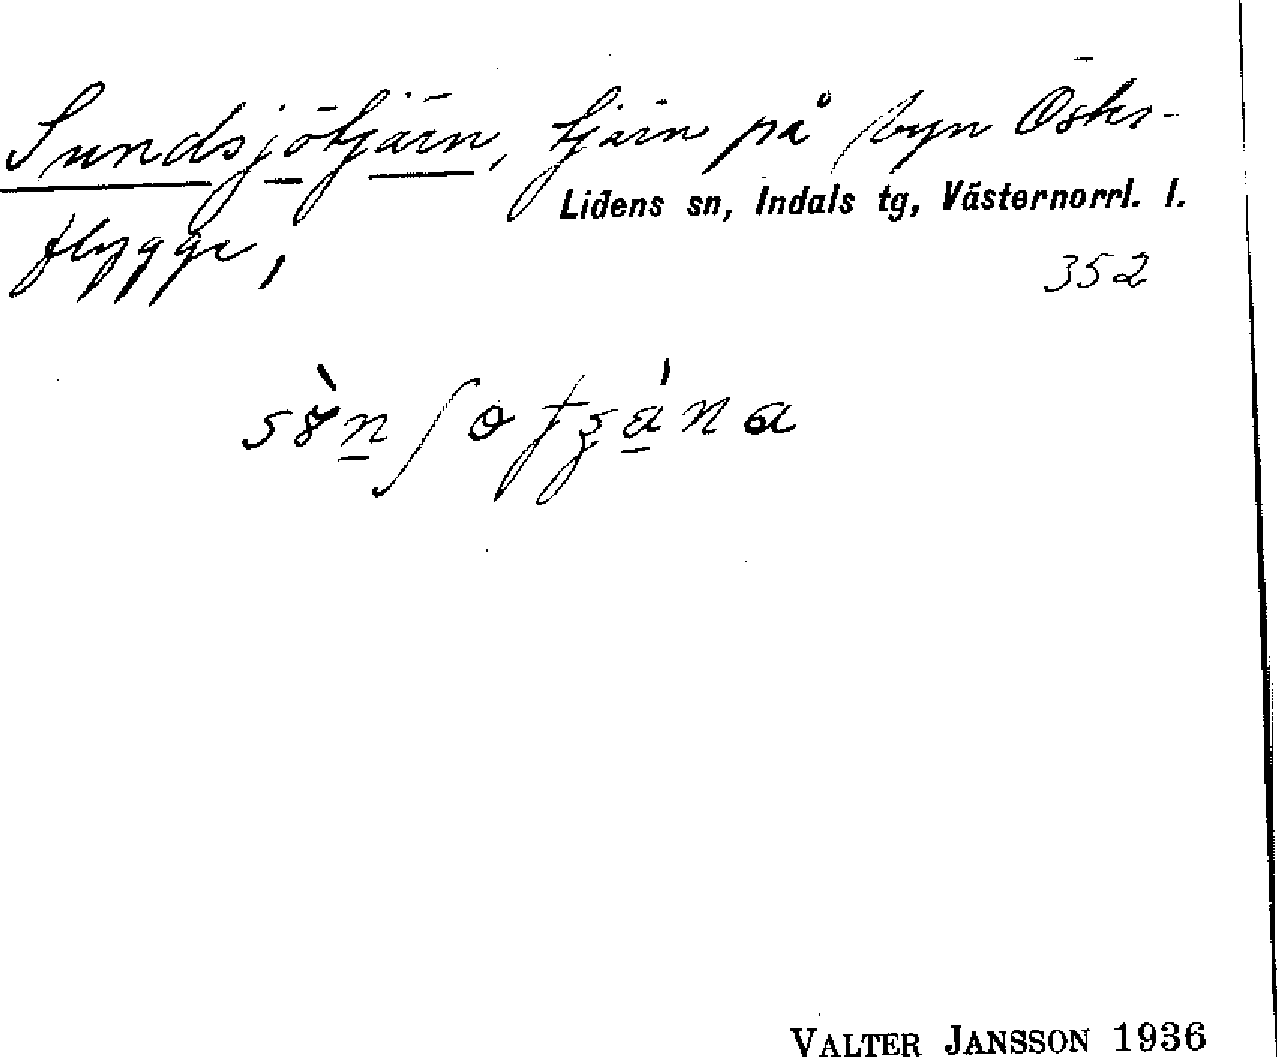 Sundsjötjärn, tjärn på byn Öster-
Lidens sn, Indals tg, Västernorrl. l.
flygge,
352
VALTER JANSSON 1936